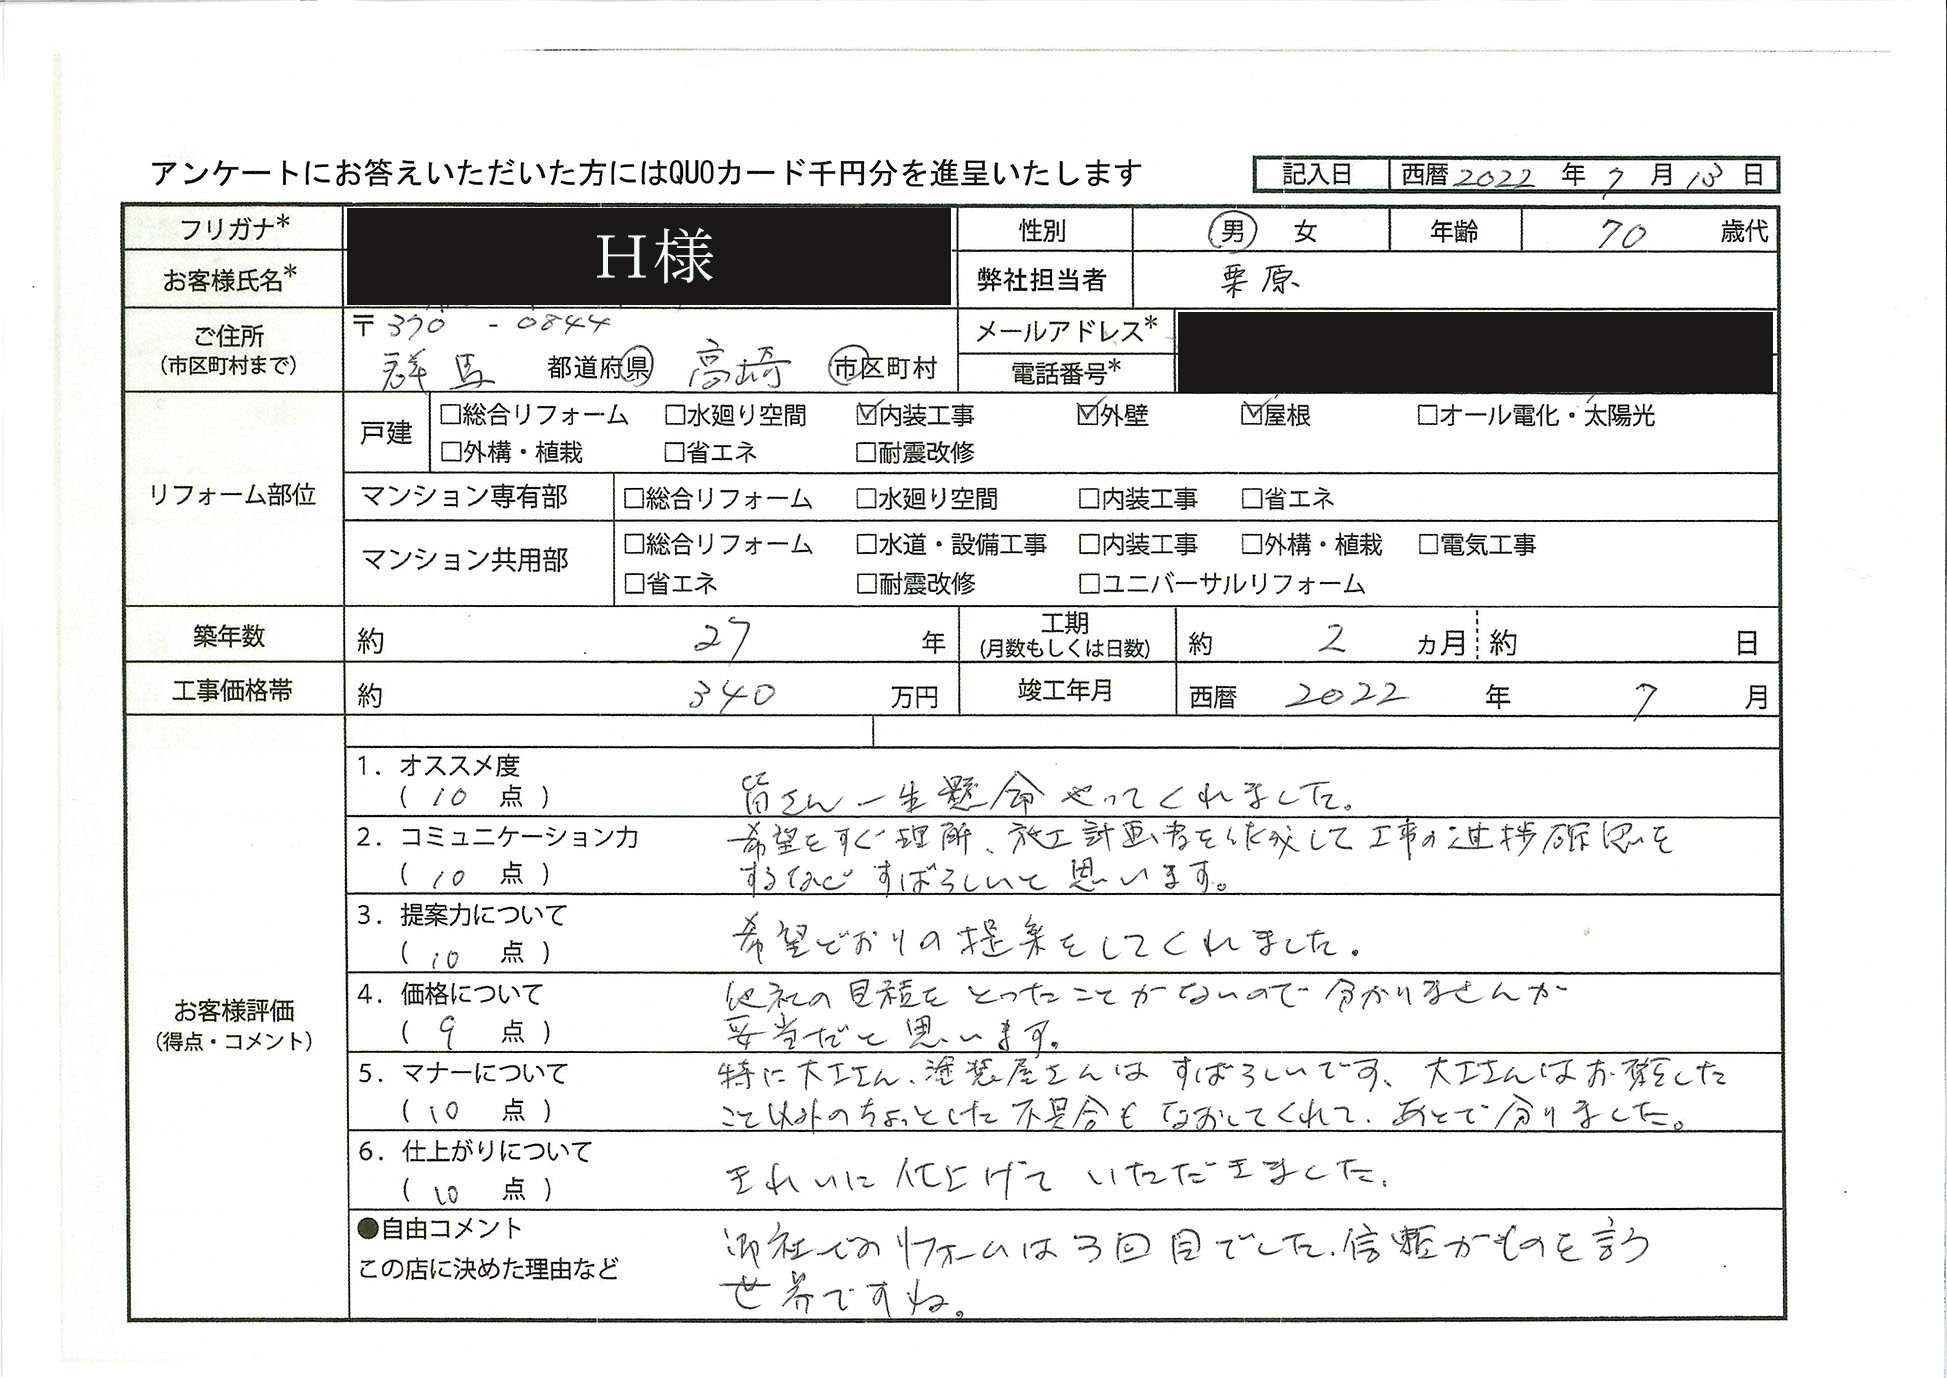 アンケートにお答えいただいた方にはQUOカード千円分を進呈いたします
記入日 西暦 2022 年 7 月 13 日
フリガナ* H様 性別 男 女 年齢 70 歳代
お客様氏名* 弊社担当者 栗原
ご住所 (市区町村まで) 〒370-0844 メールアドレス*
群馬 都道府県 高崎 市区町村 電話番号*
リフォーム部位
戸建 □総合リフォーム □水廻り空間 ☑内装工事 ☑外壁 ☑屋根 □オール電化・太陽光
□外構・植栽 □省エネ □耐震改修
マンション専有部 □総合リフォーム □水廻り空間 □内装工事 □省エネ
マンション共用部 □総合リフォーム □水道・設備工事 □内装工事 □外構・植栽 □電気工事
□省エネ □耐震改修 □ユニバーサルリフォーム
築年数 約 27 年 工期 (月数もしくは日数) 約 2 ヵ月 約 日
工事価格帯 約 340 万円 竣工年月 西暦 2022 年 7 月
お客様評価
(得点・コメント)
1. オススメ度
( 10 点 ) 皆さん一生懸命やってくれました。
2. コミュニケーション力 希望をすぐ理解、施工計画書を作成して工事の進捗確認を
( 10 点 ) するなどすばらしいと思います。
3. 提案力について
( 10 点 ) 希望どおりの提案をしてくれました。
4. 価格について 他社の見積をとったことがないので分かりませんが
( 9 点 ) 妥当だと思います。
5. マナーについて 特に大工さん、塗装屋さんはすばらしいです、大工さんはお願いした
( 10 点 ) こと以外のちょっとした不具合もなおしてくれて、あとで分りました。
6. 仕上がりについて
( 10 点 ) きれいに仕上げていただきました。
●自由コメント 御社でのリフォームは3回目でした、信頼がものを言う
この店に決めた理由など 世界ですね。